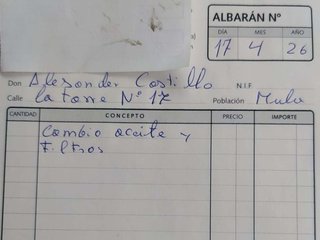 ALBARÁN Nº
DÍA MES AÑO
17 4 26
Don Alexander Costillo N.I.F
Calle la torre Nº 17 Población Mula
CANTIDAD CONCEPTO PRECIO IMPORTE
Cambio aceite y
Filtros